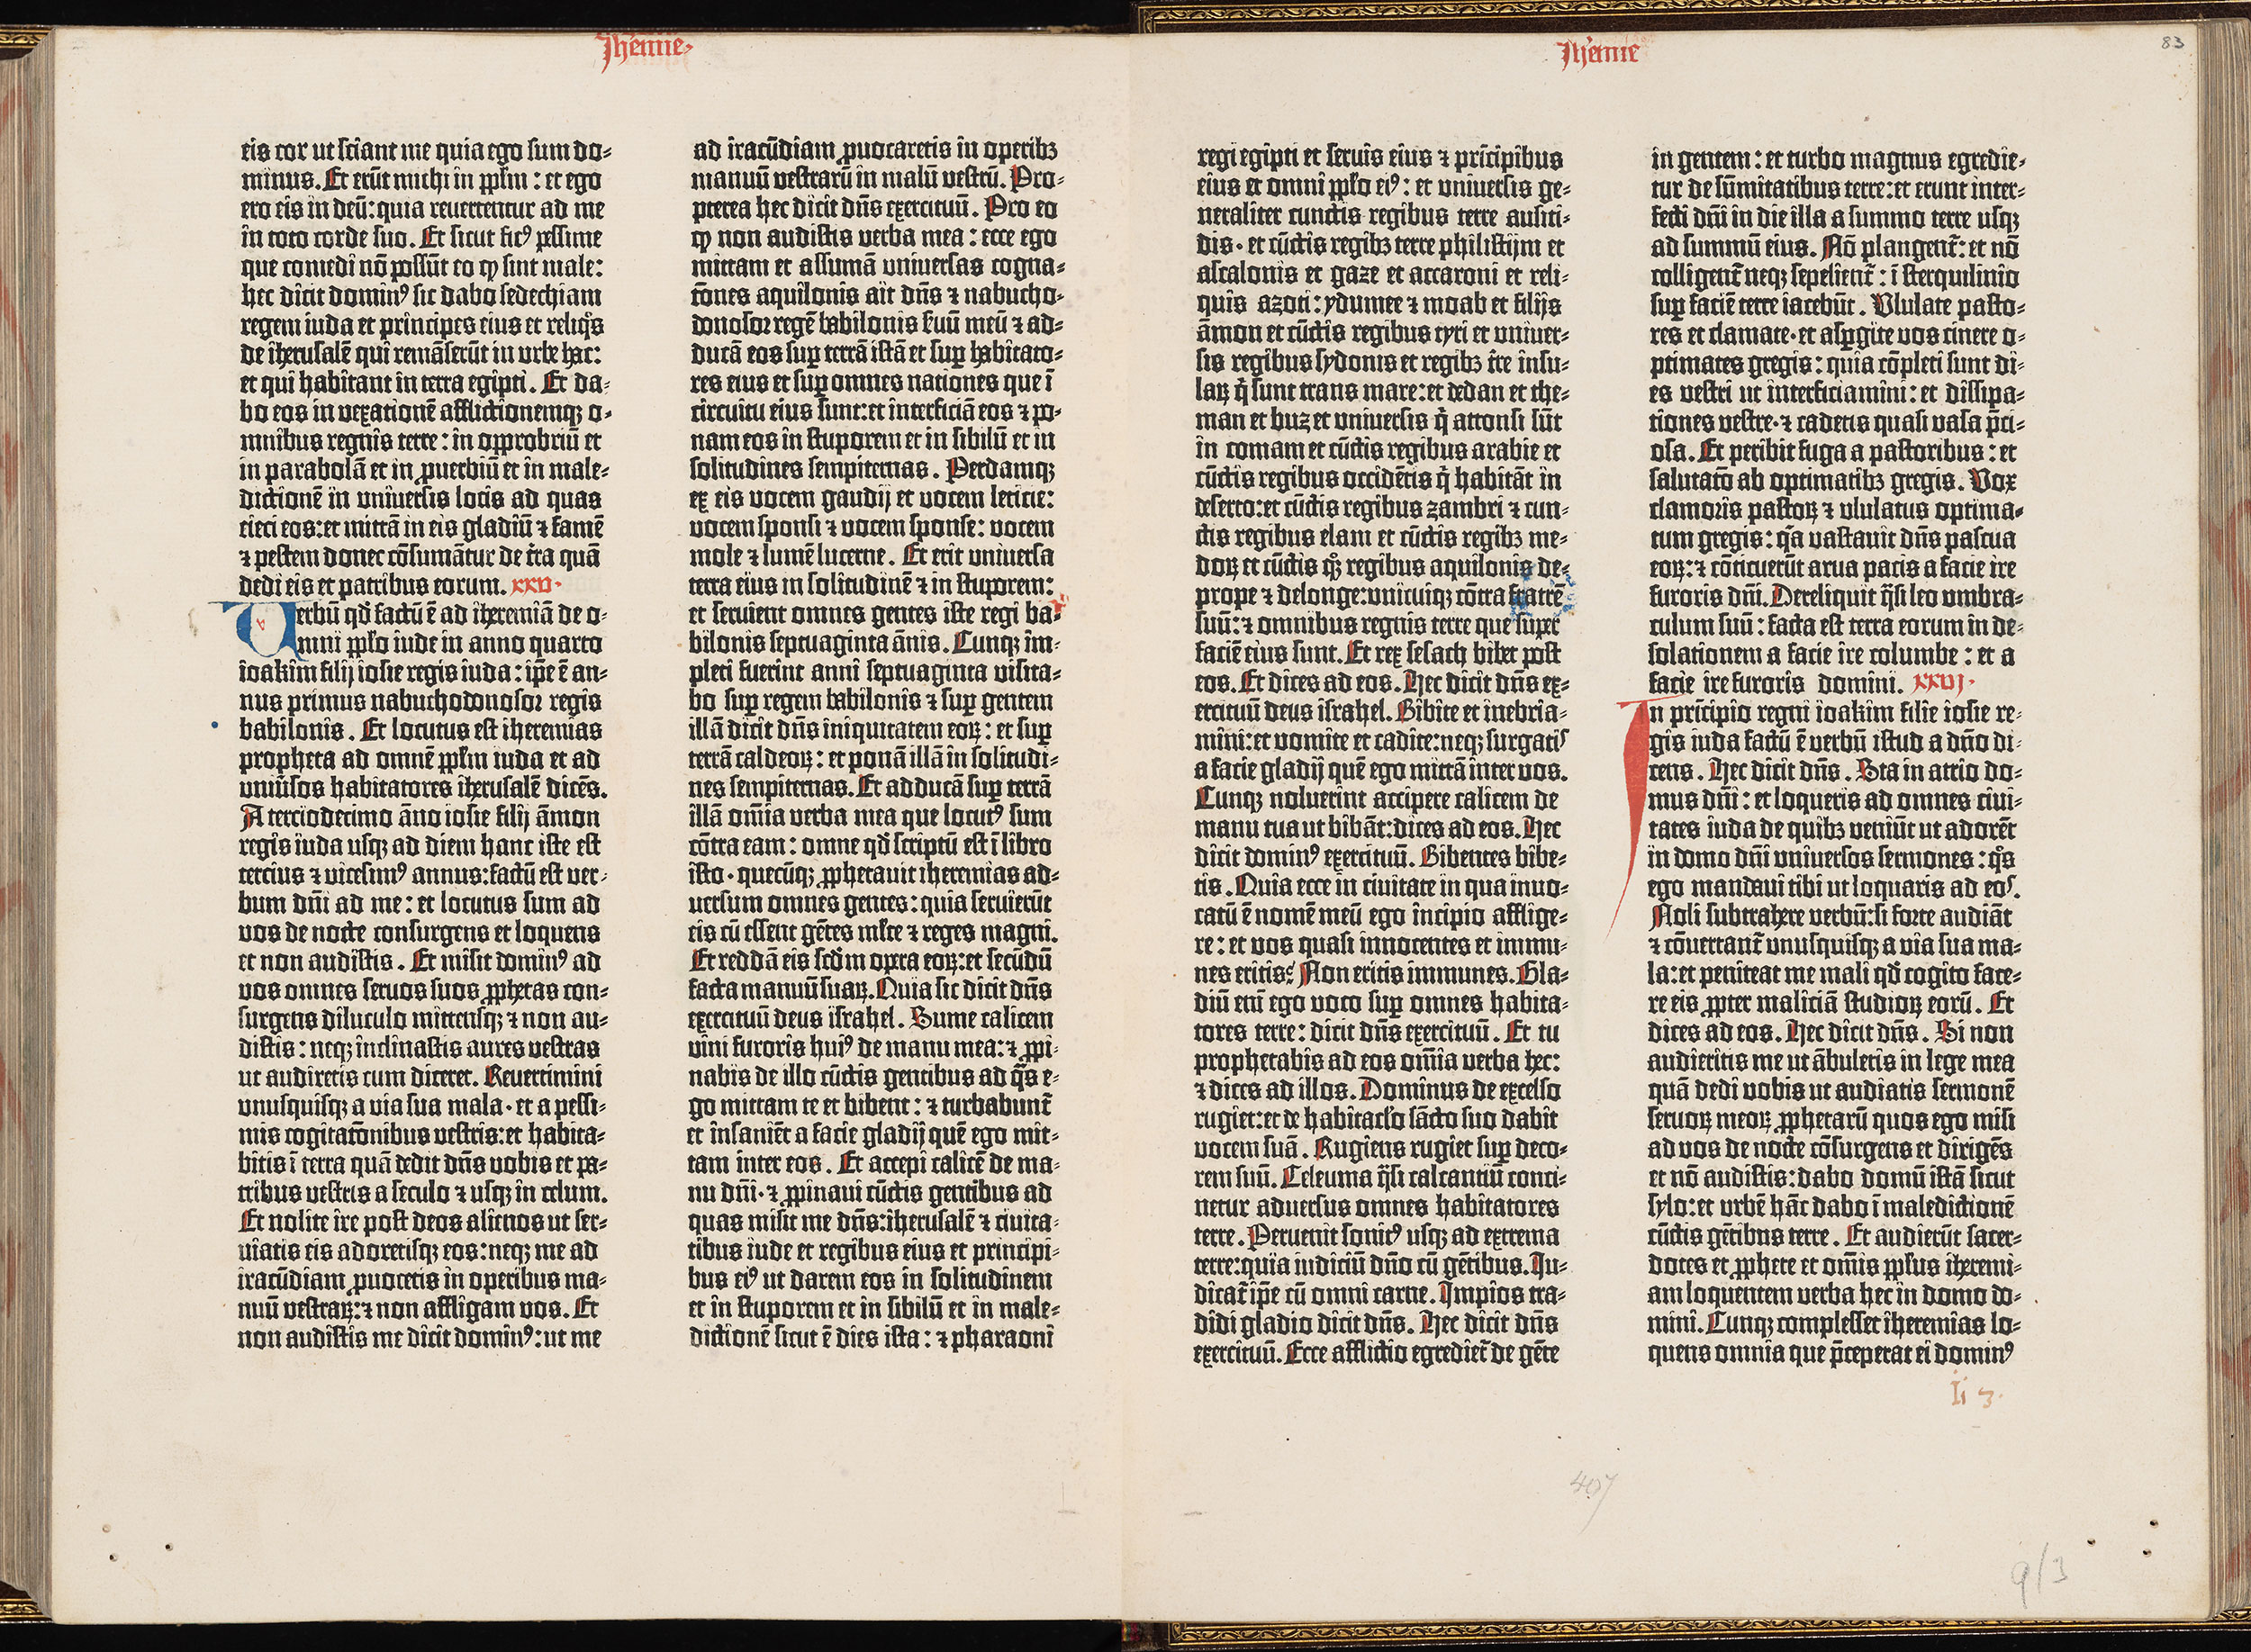 Jh'emie·
eis cor ut sciant me quia ego sum do-
minus. Et erūt michi in ppl'm : et ego
ero eis in deū: quia revertentur ad me
in toto corde suo. Et sicut ficꝰ pessime
que comedi nō possūt eo ꝙ sint male:
hec dicit dominꝰ sic dabo sedechiam
regem iuda et principes eius et reliq̄s
de iherusalē qui remāserūt in urbe hac:
et qui habitant in terra egipti. Et da-
bo eos in vexationē afflictionemqꝫ o-
mnibus regnis terre: in opprobriū et
in parabolā et in ꝓverbiū et in male-
dictionē in universis locis ad quas
eieci eos: et mittā in eis gladiū ⁊ famē
⁊ pestem donec cōsumātur de t'ra quā
dedi eis et patribus eorum. xxv·
Verbū qd' factū ē ad iheremiā de o-
mni pp'lo iude in anno quarto
ioakim filij iosie regis iuda: ip̄e ē an-
nus primus nabuchodonosor regis
babilonis. Et locutus est iheremias
propheta ad omnē ppl'm iuda et ad
univ'sos habitatores iherusalē dicēs.
A terciodecimo āno iosie filij āmon
regis iuda usqꝫ ad diem hanc iste est
tercius ⁊ vicesimꝰ annus: factū est ver-
bum dn̄i ad me: et locutus sum ad
vos de nocte consurgens et loquens
et non audistis. Et misit dominꝰ ad
vos omnes servos suos ꝓphetas con-
surgens diluculo mittensqꝫ ⁊ non au-
distis: neqꝫ inclinastis aures vestras
ut audiretis cum diceret. Revertimini
unusquisqꝫ a via sua mala· et a pessi-
mis cogitatōnibus vestris: et habita-
bitis ī terra quā dedit dn̄s vobis et pa-
tribus vestris a seculo ⁊ usqꝫ in celum.
Et nolite ire post deos alienos ut ser-
viatis eis adoretisqꝫ eos: neqꝫ me ad
iracūdiam ꝓvocetis in operibus ma-
nuū vestraꝝ: ⁊ non affligam vos. Et
non audistis me dicit dominꝰ: ut me
ad iracūdiam ꝓvocaretis in operibꝫ
manuū vestrarū in malū vestrū. Pro-
pterea hec dicit dn̄s exercituū. Pro eo
ꝙ non audistis verba mea: ecce ego
mittam et assumā universas cogna-
tōnes aquilonis ait dn̄s ⁊ nabucho-
donosor regē babilonis s'vū meū ⁊ ad-
ducā eos suꝑ terrā istā et suꝑ habitato-
res eius et suꝑ omnes nationes que ī
circuitu eius sunt: et interficiā eos ⁊ po-
nam eos in stuporem et in sibilū et in
solitudines sempiternas. Perdamqꝫ
ex eis vocem gaudij et vocem leticie:
vocem sponsi ⁊ vocem sponse: vocem
mole ⁊ lumē lucerne. Et erit universa
terra eius in solitudinē ⁊ in stuporem:
et servient omnes gentes iste regi ba-
bilonis septuaginta ānis. Cunqꝫ im-
pleti fuerint anni septuaginta visita-
bo suꝑ regem babilonis ⁊ suꝑ gentem
illā dicit dn̄s iniquitatem eoꝝ: et suꝑ
terrā caldeoꝝ: et ponā illā in solitudi-
nes sempiternas. Et adducā suꝑ terrā
illā om̄ia verba mea que locutꝰ sum
cōtra eam: omne qd' scriptū est ī libro
isto· quecūqꝫ ꝓphetavit iheremias ad-
versum omnes gentes: quia servierūt
eis cū essent gētes ml'te ⁊ reges magni.
Et reddā eis scd'm opera eoꝝ: et secūdū
facta manuū suaꝝ. Quia sic dicit dn̄s
exercituū deus israhel. Sume calicem
vini furoris huiꝰ de manu mea: ⁊ ꝓpi-
nabis de illo cūctis gentibus ad q̄s e-
go mittam te et bibent: ⁊ turbabunt'
et insaniēt a facie gladij quē ego mit-
tam inter eos. Et accepi calicē de ma-
nu dn̄i· ⁊ ꝓpinavi cūctis gentibus ad
quas misit me dn̄s: iherusalē ⁊ civita-
tibus iude et regibus eius et principi-
bus eiꝰ ut darem eos in solitudinem
et in stuporem et in sibilū et in male-
dictionē sicut ē dies ista: ⁊ pharaoni
Jh'emie
83
regi egipti et servis eius ⁊ prīcipibus
eius et omni pp'lo eiꝰ: et universis ge-
neraliter cunctis regibus terre ausiti-
dis· et cūctis regibꝫ terre philistijm et
ascalonis et gaze et accaroni et reli-
quis azoti: ydumee ⁊ moab et filijs
āmon et cūctis regibus tyri et univer-
sis regibus sydonis et regibꝫ t're insu-
laꝝ q̇ sunt trans mare: et dedan et the-
man et buz et universis q̇ attonsi sūt
in comam et cūctis regibus arabie et
cūctis regibus occidētis q̇ habitāt in
deserto: et cūctis regibus zambri ⁊ cun-
ctis regibus elam et cūctis regibꝫ me-
doꝝ et cūctis qͦꝫ regibus aquilonis de-
prope ⁊ delonge: unicuiqꝫ cōtra fratrē
suū: ⁊ omnibus regnis terre que super
faciē eius sunt. Et rex sesach bibet post
eos. Et dices ad eos. Hec dicit dn̄s ex-
ercituū deus israhel. Bibite et inebria-
mini: et vomite et cadite: neqꝫ surgatis
a facie gladij quē ego mittā inter vos.
Cunqꝫ noluerint accipere calicem de
manu tua ut bibāt: dices ad eos. Hec
dicit dominꝰ exercituū. Bibentes bibe-
tis. Quia ecce in civitate in qua invo-
catū ē nomē meū ego incipio afflige-
re: et vos quasi innocentes et immu-
nes eritis? Non eritis immunes. Gla-
diū eni ego voco suꝑ omnes habita-
tores terre: dicit dn̄s exercituū. Et tu
prophetabis ad eos om̄ia verba hec:
⁊ dices ad illos. Dominus de excelso
rugiet: et de habitac'lo sācto suo dabit
vocem suā. Rugiens rugiet suꝑ deco-
rem suū. Celeuma q̄si calcantiū conci-
netur adversus omnes habitatores
terre. Pervenit sonitꝰ usqꝫ ad extrema
terre: quia iudiciū dn̄o cū gētibus. Ju-
dicat' ip̄e cū omni carne. Impios tra-
didi gladio dicit dn̄s. Hec dicit dn̄s
exercituū. Ecce afflictio egrediet' de gēte
in gentem: et turbo magnus egredie-
tur de sūmitatibus terre: et erunt inter-
fecti dn̄i in die illa a summo terre usqꝫ
ad summū eius. Nō plangent': et nō
colligent' neqꝫ sepelient': ī sterquilinio
suꝑ faciē terre iacebūt. Ululate pasto-
res et clamate· et asꝑgite vos cinere o-
ptimates gregis: quia cōpleti sunt di-
es vestri ut interficiamini: et dissipa-
tiones vestre· ⁊ cadetis quasi vasa p̄ci-
osa. Et peribit fuga a pastoribus: et
salvatō ab optimatibꝫ gregis. Vox
clamoris pastoꝝ ⁊ ululatus optima-
tum gregis: q̄a vastavit dn̄s pascua
eoꝝ: ⁊ cōticuerūt arva pacis a facie ire
furoris dn̄i. Dereliquit q̄si leo umbra-
culum suū: facta est terra eorum in de-
solationem a facie ire columbe: et a
facie ire furoris domini. xxvj·
In prīcipio regni ioakim filie iosie re-
gis iuda factū ē verbū istud a dn̄o di-
cens. Hec dicit dn̄s. Sta in atrio do-
mus dn̄i: et loqueris ad omnes civi-
tates iuda de quibꝫ veniūt ut adorēt
in domo dn̄i universos sermones: qͦs
ego mandavi tibi ut loquaris ad eos.
Noli subtrahere verbū: si forte audiāt
⁊ cōvertant' unusquisqꝫ a via sua ma-
la: et peniteat me mali qd' cogito face-
re eis ꝓpter maliciā studioꝝ eorū. Et
dices ad eos. Hec dicit dn̄s. Si non
audieritis me ut ābuletis in lege mea
quā dedi vobis ut audiatis sermonē
servoꝝ meoꝝ ꝓphetarū quos ego misi
ad vos de nocte cōsurgens et dirigēs
et nō audistis: dabo domū istā sicut
sylo: et urbē hāc dabo ī maledictionē
cūctis gētibus terre. Et audierūt sacer-
dotes et ꝓphete et om̄is pp'lus iheremi-
am loquentem verba hec in domo do-
mini. Cunqꝫ complesset iheremias lo-
quens omnia que p̄ceperat ei dominꝰ
Ii 3·
407
9/3